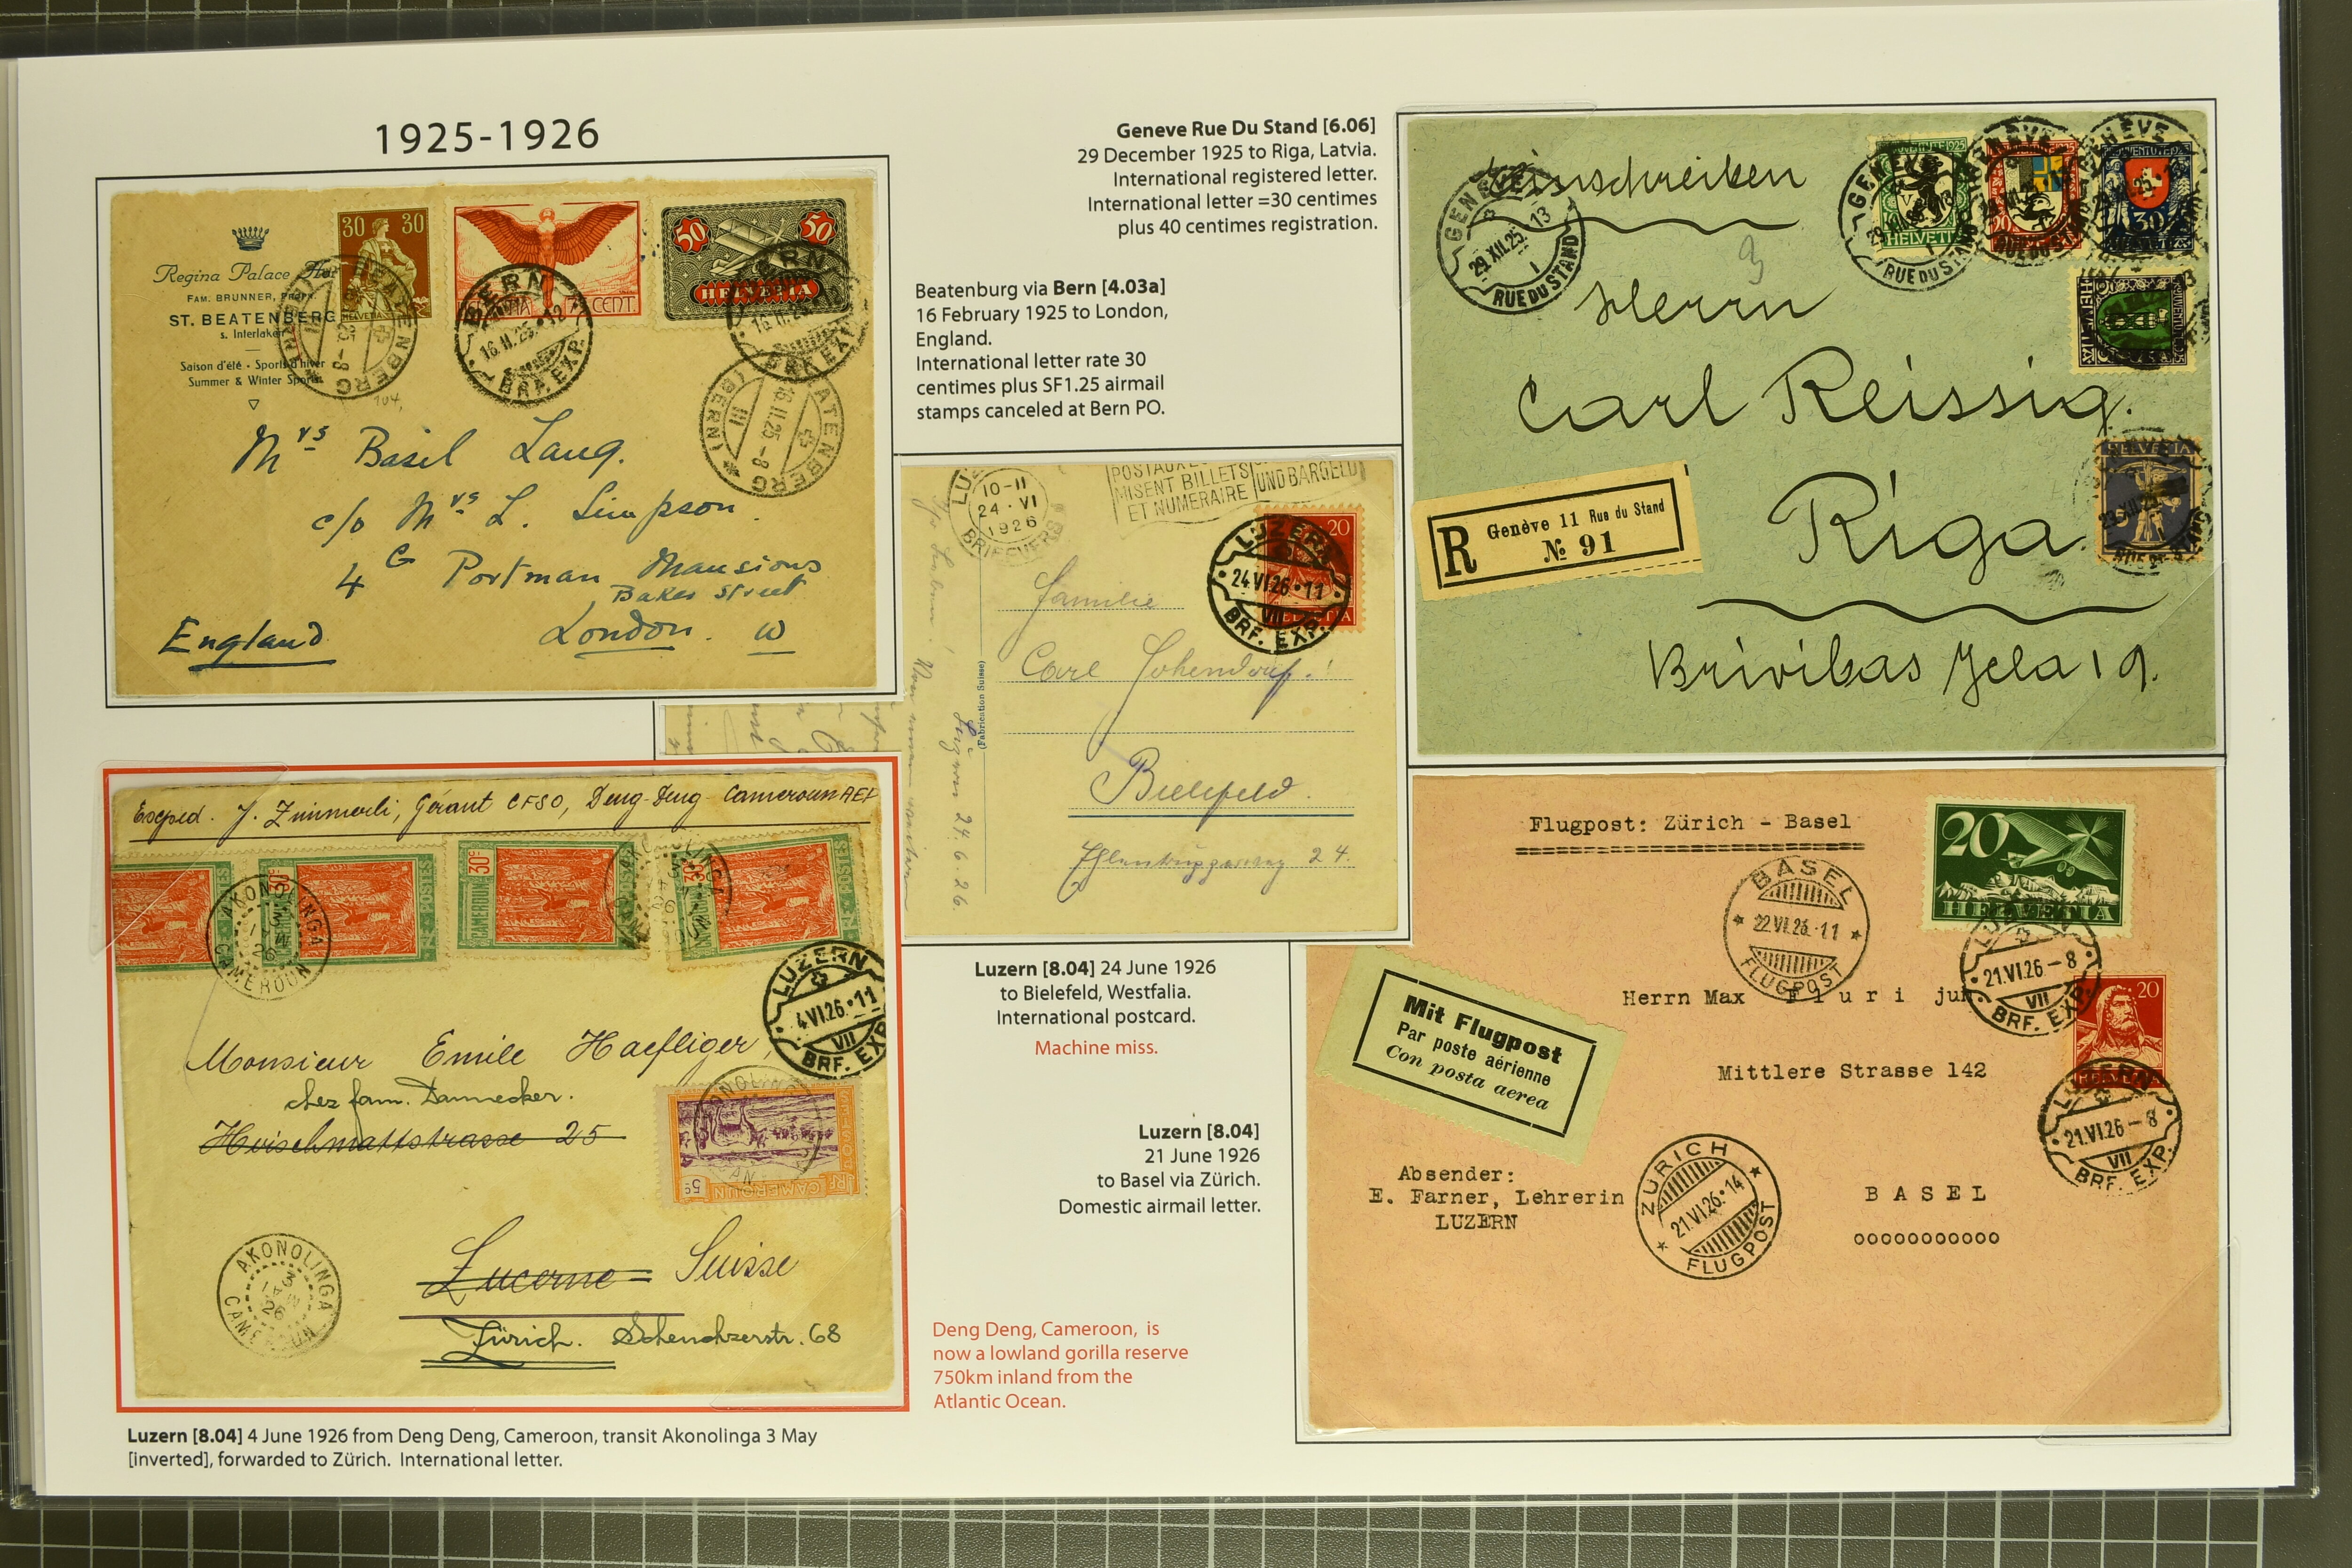 1925-1926
Geneve Rue Du Stand [6.06]
29 December 1925 to Riga, Latvia.
International registered letter.
International letter =30 centimes
plus 40 centimes registration.
Beatenburg via Bern [4.03a]
16 February 1925 to London,
England.
International letter rate 30
centimes plus SF1.25 airmail
stamps canceled at Bern PO.
Regina Palace
FAM. BRUNNER, PROPR.
ST. BEATENBERG
s. Interlaken
Saison d'été - Sports d'hiver
Summer & Winter Sports
30 30
HELVETIA
75 CENT.
50 50
HELVETIA
BERN
16.II.25.-12
BRF. EXP.
BERN
16.II.25.-12
BRF. EXP.
BEATENBERG
BEATENBERG
(BERN)
16.II.25-8
III
104,
Mrs Basil Lang.
c/o Mrs L. Simpson.
4 G Portman Mansions
Baker Street
London. W
England
LUZERN
10-11
24·VI
1926
BRIEFVERS
POSTAUX
MISENT BILLETS
ET NUMERAIRE
UND BARGELD
20
HELVETIA
LUZERN
24.VI.26·11
VII
BRF. EXP.
Familie
Carl
Bielefeld.
24.
(Fabrication Suisse)
24.6.26.
Einschreiben
GENÈVE
29.XII.25.-13
1
RUE DU STAND
3
GENÈVE
29.XII.25.-13
RUE DU STAND
HELVETIA
20
30
Herrn
Carl Reissig.
Riga.
Brivibas Jela 19.
R Genève 11 Rue du Stand
№ 91
HELVETIA
Exped. J. Zimmerli, Gérant CFSO, Deng-Deng Cameroun AEF
30c
CAMEROUN
30c
RF POSTES
AKONOLINGA
CAMEROUN
LUZERN
4.VI.26·11
VII
BRF. EXP.
Monsieur Emile Haefliger,
chez fam. Dannecker.
Hirschmattstrasse 25
5c
CAMEROUN
RF
POSTES
Lucerne Suisse
Zürich. Scheuchzerstr. 68
AKONOLINGA
3
MAI
26
CAMEROUN
Luzern [8.04] 24 June 1926
to Bielefeld, Westfalia.
International postcard.
Machine miss.
Luzern [8.04]
21 June 1926
to Basel via Zürich.
Domestic airmail letter.
Deng Deng, Cameroon, is
now a lowland gorilla reserve
750km inland from the
Atlantic Ocean.
Luzern [8.04] 4 June 1926 from Deng Deng, Cameroon, transit Akonolinga 3 May
[inverted], forwarded to Zürich. International letter.
Flugpost: Zürich - Basel
BASEL
22.VI.26.-11
FLUGPOST
20
HELVETIA
LUZERN
21.VI.26-8
VII
BRF. EXP.
Mit Flugpost
Par poste aérienne
Con posta aerea
Herrn Max Fluri jun.
20
Mittlere Strasse 142
LUZERN
21.VI.26-8
VII
BRF. EXP.
Absender:
E. Farner, Lehrerin
LUZERN
ZÜRICH
21.VI.26.-14
FLUGPOST
BASEL
ooooooooooo